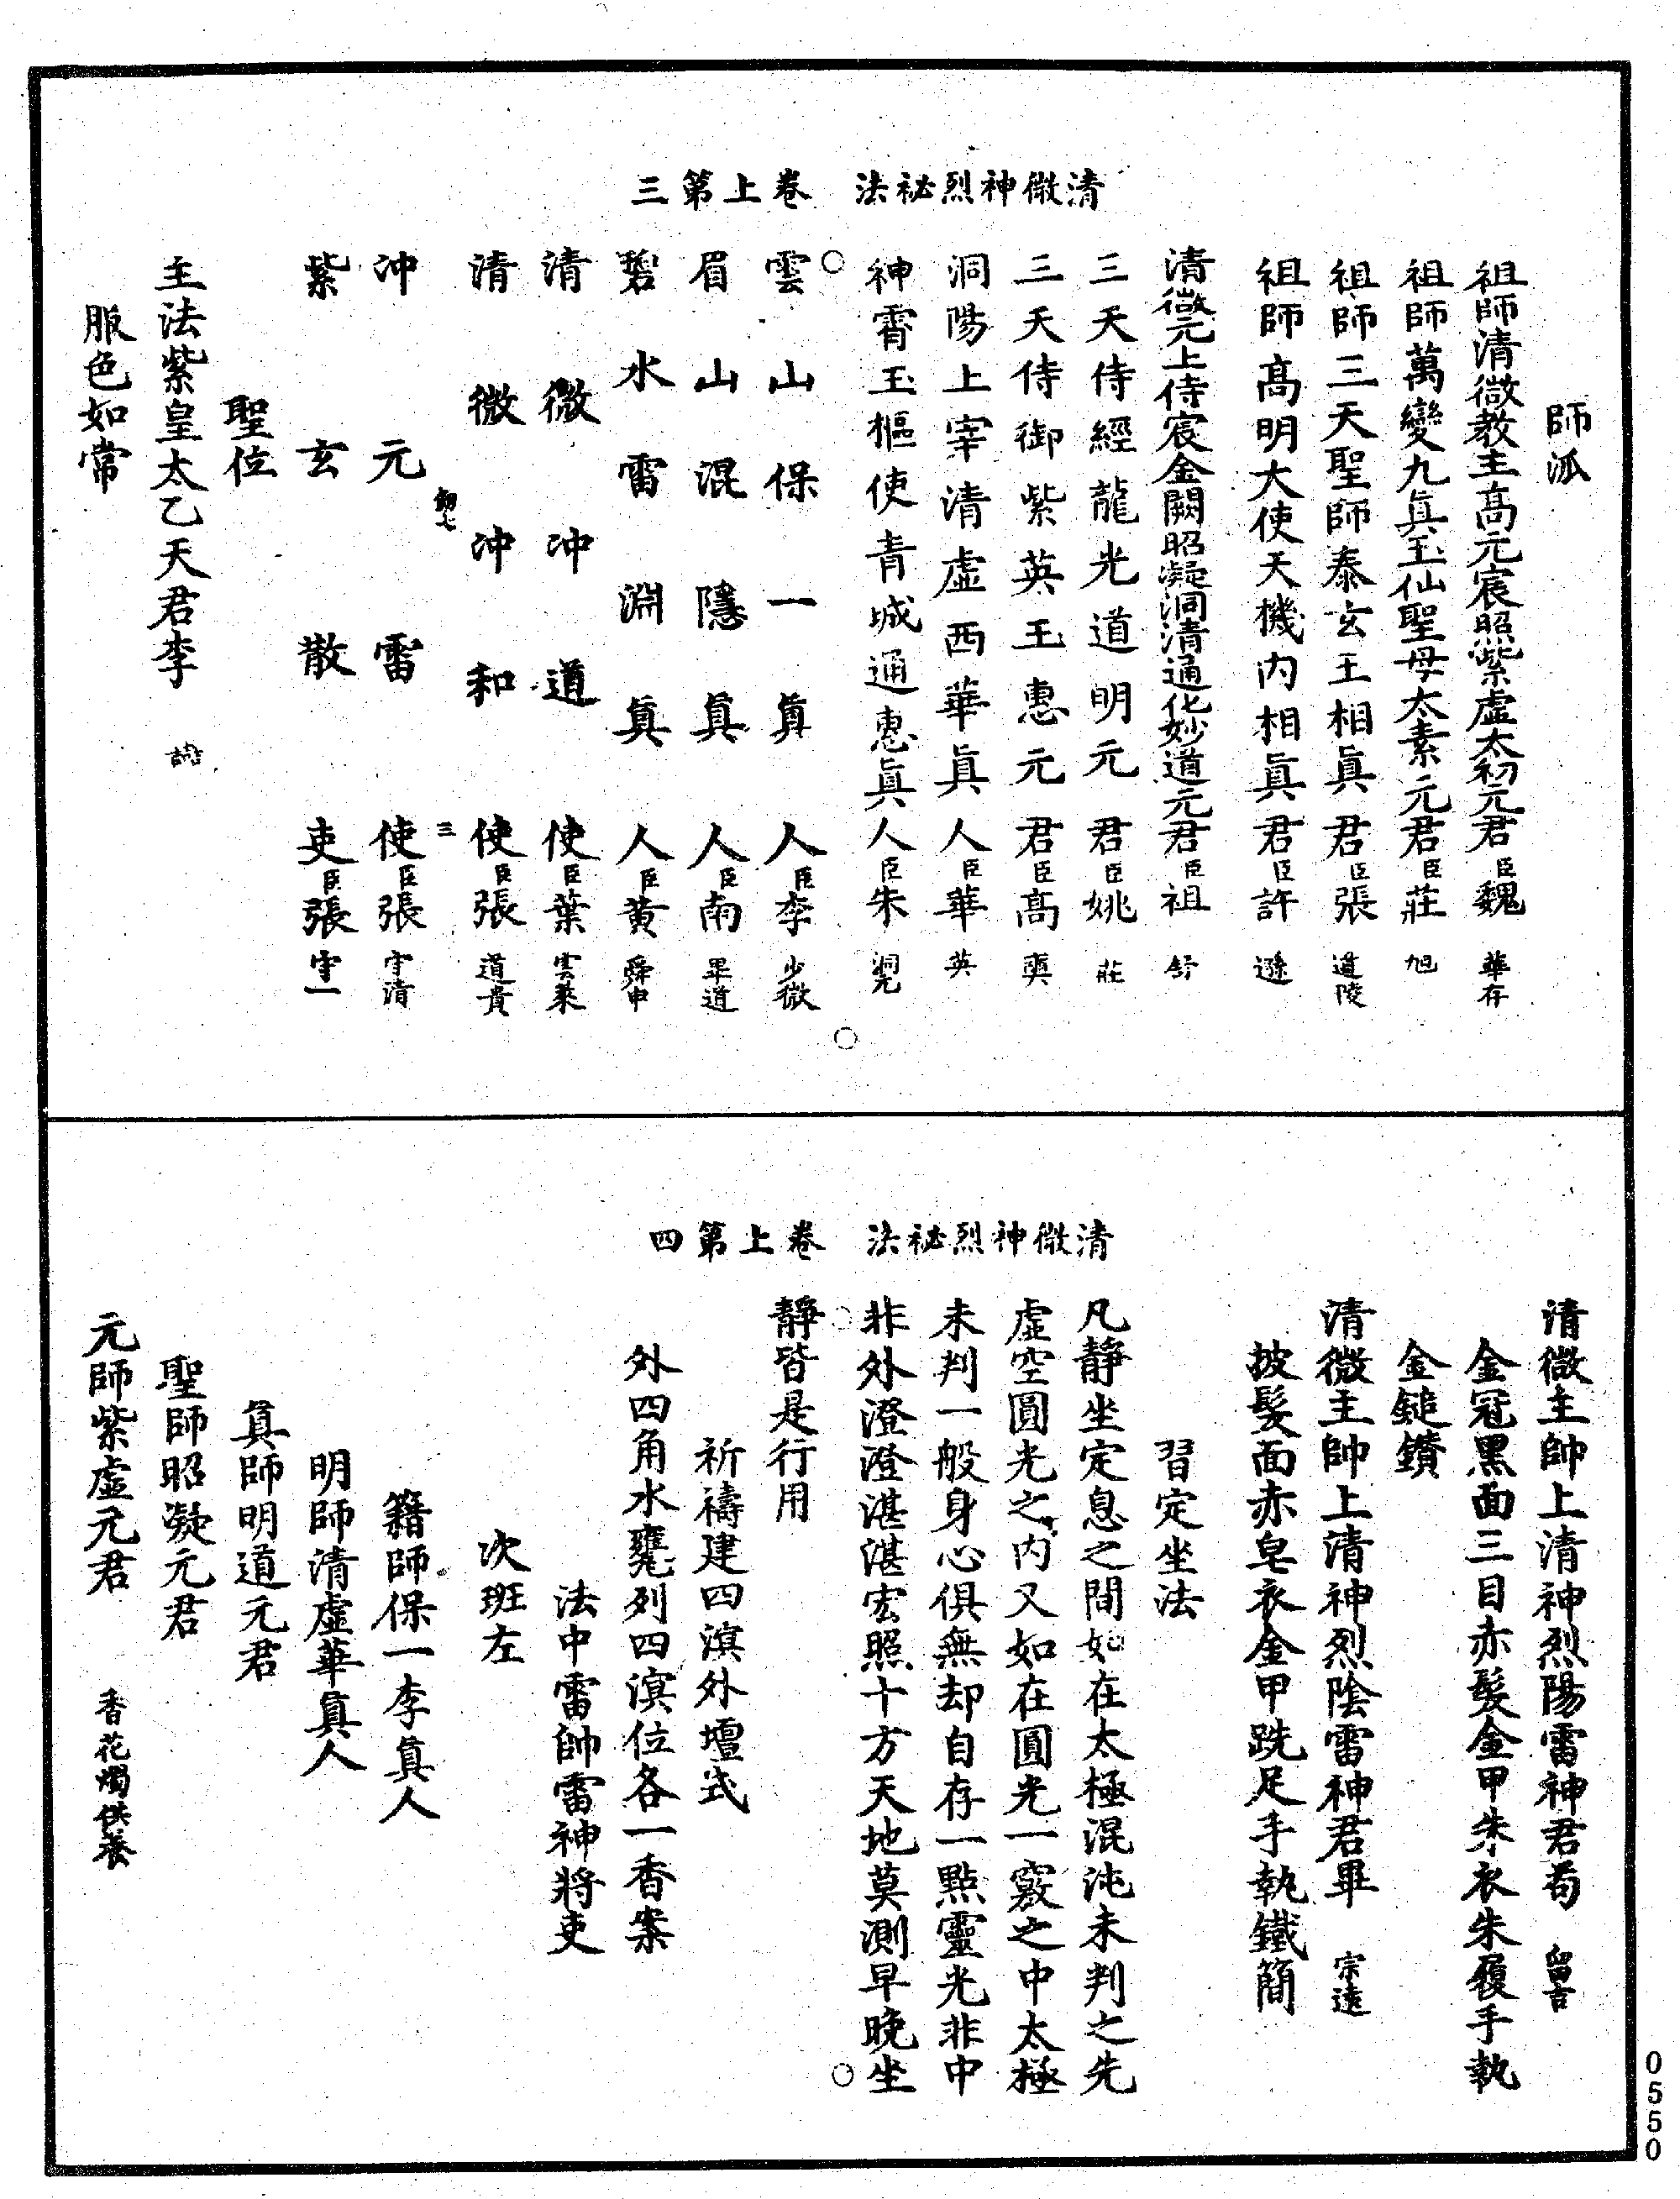 清微神烈祕法　卷上第三
師派
祖師清微教主高元宸照紫虛太初元君臣魏華存
祖師萬變九真玉仙聖母太素元君臣莊旭
祖師三天聖師泰玄上相真君臣張道陵
祖師高明大使天機內相真君臣許遜
清微元上侍宸金闕昭凝洞清通化妙道元君臣祖舒
三天侍經龍光道明元君臣姚莊
三天侍御紫英玉惠元君臣高奭
洞陽上宰清虛西華真人臣華英
神霄玉樞使青城通惠真人臣朱洞元
雲山保一真人臣李少微
眉山混隱真人臣南畢道
碧水雷淵真人臣黃舜申
清微冲道使臣葉雲萊
清微冲和使臣張道貴
三
冲元雷使臣張守清
紫玄散吏臣張守一
聖位
主法紫皇太乙天君李
服色如常
清微神烈祕法　卷上第四
清微主帥上清神烈陽雷神君苟留吉
金冠黑面三目赤髮金甲朱衣朱履手執
金鎚鑽
清微主帥上清神烈陰雷神君畢宗遠
披髮面赤皂衣金甲跣足手執鐵簡
習定坐法
凡靜坐定息之間如在太極混沌未判之先
虛空圓光之內又如在圓光一竅之中太極
未判一般身心俱無却自存一點靈光非中
非外澄澄湛湛宏照十方天地莫測早晚坐
靜皆是行用
祈禱建四溟外壇式
外四角水甕列四溟位各一香案
法中雷帥雷神將吏
次班左
籍師保一李真人
明師清虛華真人
真師明道元君
聖師昭凝元君
元師紫虛元君　香花燭供養
0550